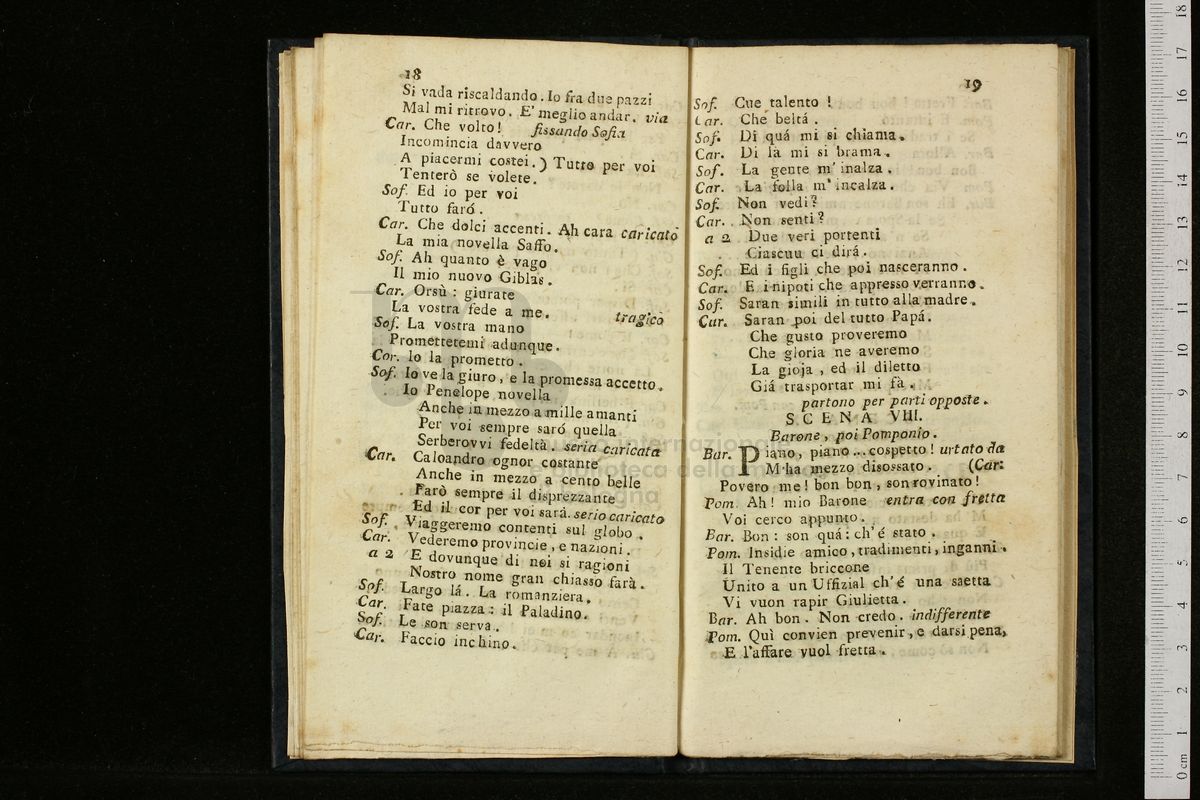 18
Si vada riscaldando. Io fra due pazzi
Mal mi ritrovo. E' meglio andar. via
Car. Che volto! fissando Sofia
Incomincia davvero
A piacermi costei.) Tutto per voi
Tenterò se volete.
Sof. Ed io per voi
Tutto faró.
Car. Che dolci accenti. Ah cara caricato
La mia novella Saffo.
Sof. Ah quanto è vago
Il mio nuovo Giblas.
Car. Orsù: giurate
La vostra fede a me. tragico
Sof. La vostra mano
Promettetemi adunque.
Cor. Io la prometto.
Sof. Io ve la giuro, e la promessa accetto.
Io Penelope novella
Anche in mezzo a mille amanti
Per voi sempre saró quella
Serberovvi fedeltà. seria caricata
Car. Caloandro ognor costante
Anche in mezzo a cento belle
Farò sempre il disprezzante
Ed il cor per voi sará. serio caricato
Sof. Viaggeremo contenti sul globo.
Car. Vederemo provincie, e nazioni.
a 2 E dovunque di noi si ragioni
Nostro nome gran chiasso farà.
Sof. Largo lá. La romanziera.
Car. Fate piazza: il Paladino.
Sof. Le son serva.
Car. Faccio inchino.
19
Sof. Cue talento!
Car. Che beltá.
Sof. Di quá mi si chiama.
Car. Di là mi si brama.
Sof. La gente m' inalza.
Car. La folla m' incalza.
Sof. Non vedi?
Car. Non senti?
a 2 Due veri portenti
Ciascuu ci dirá.
Sof. Ed i figli che poi nasceranno.
Car. E i nipoti che appresso verranno.
Sof. Saran simili in tutto alla madre.
Car. Saran poi del tutto Papá.
Che gusto proveremo
Che gloria ne averemo
La gioja, ed il diletto
Giá trasportar mi fà.
partono per parti opposte.
SCENA VIII.
Barone, poi Pomponio.
Bar. Piano, piano... cospetto! urtato da
M'ha mezzo disossato. (Car:
Povero me! bon bon, son rovinato!
Pom. Ah! mio Barone entra con fretta
Voi cerco appunto.
Bar. Bon: son quá: ch'é stato.
Pom. Insidie amico, tradimenti, inganni.
Il Tenente briccone
Unito a un Uffizial ch'é una saetta
Vi vuon rapir Giulietta.
Bar. Ah bon. Non credo. indifferente
Pom. Quì convien prevenir, e darsi pena,
E l'affare vuol fretta.